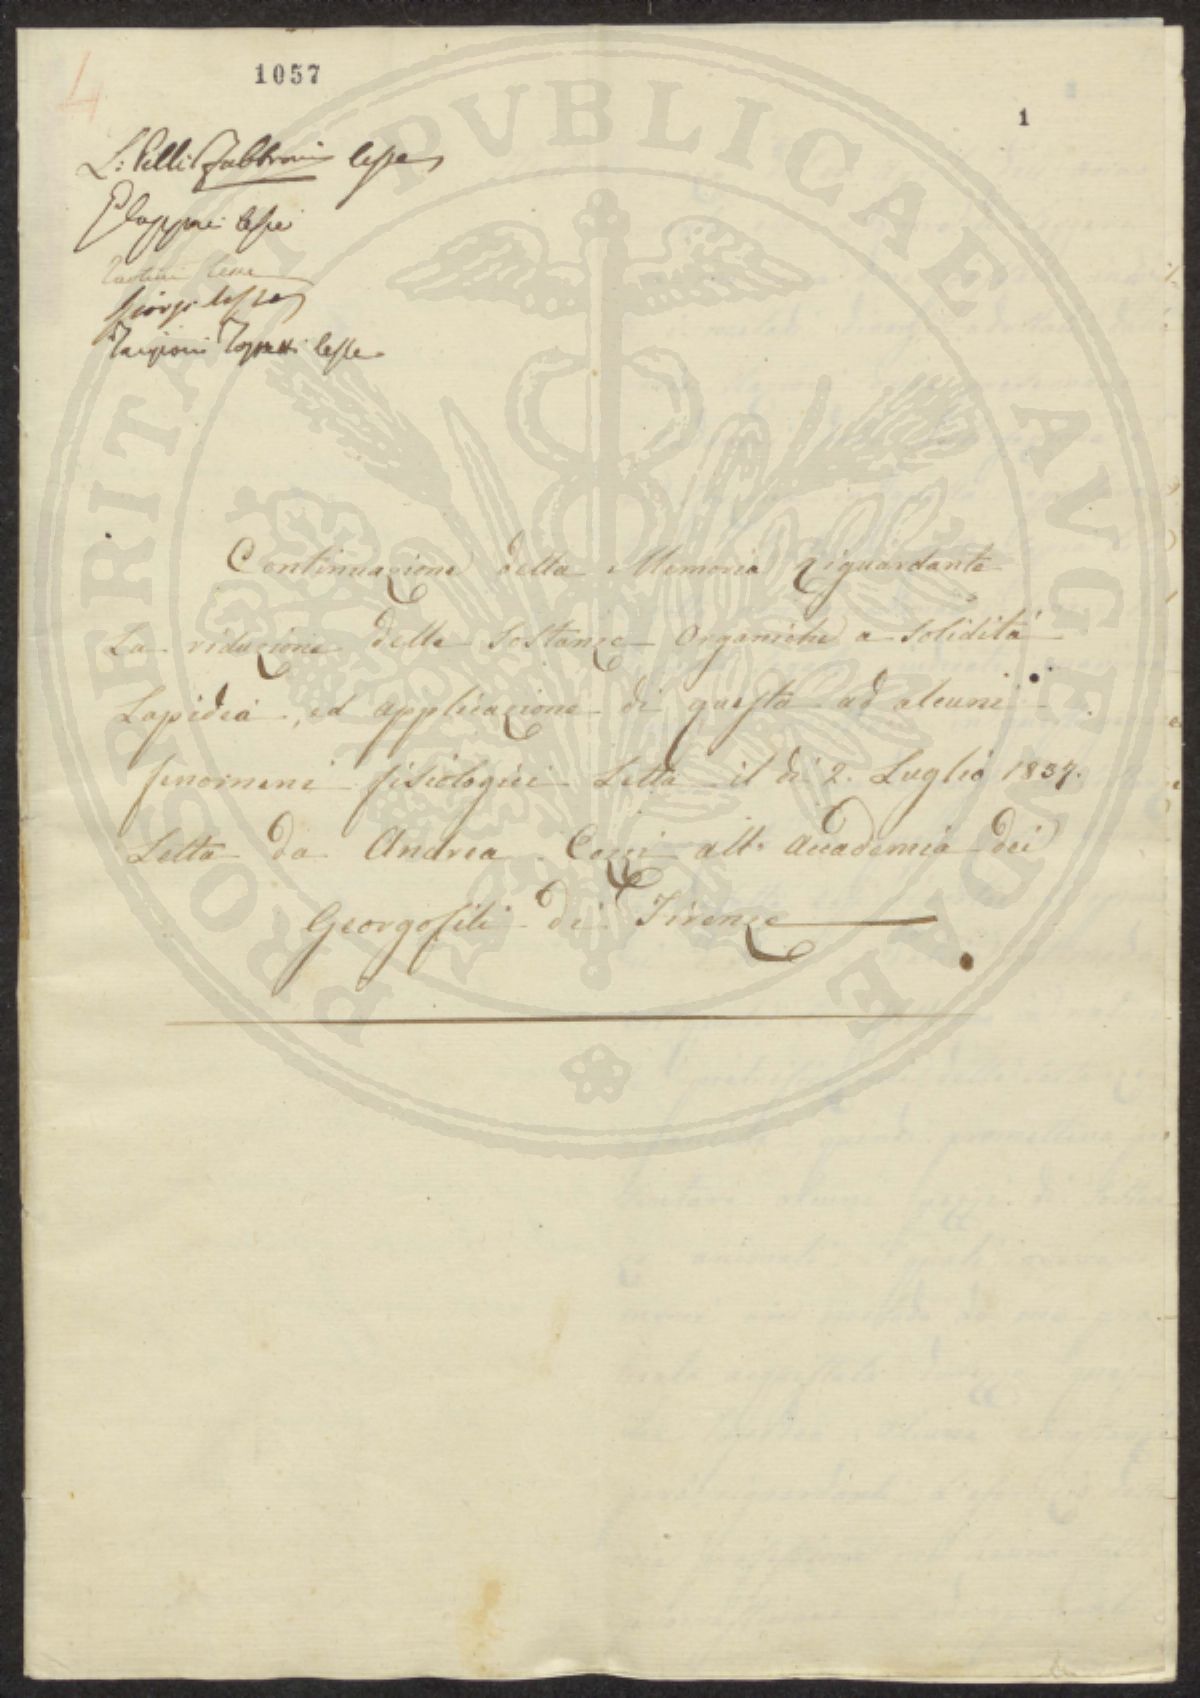 4
1057
1
L: Pelli Fabbroni lesse
lesse
Tartini lesse
Giorgi lesse
Targioni Tozzetti lesse
Continuazione della Memoria riguardante
La riduzione delle Sostanze Organiche a solidità
Lapidea, ed applicazione di questa ad alcuni
fenomeni fisiologici Letta il dì 2. Luglio 1837.
Letta da Andrea Cozzi all' Accademia dei
Georgofili di Firenze
PROSPERITATI PVBLICAE AVGENDAE